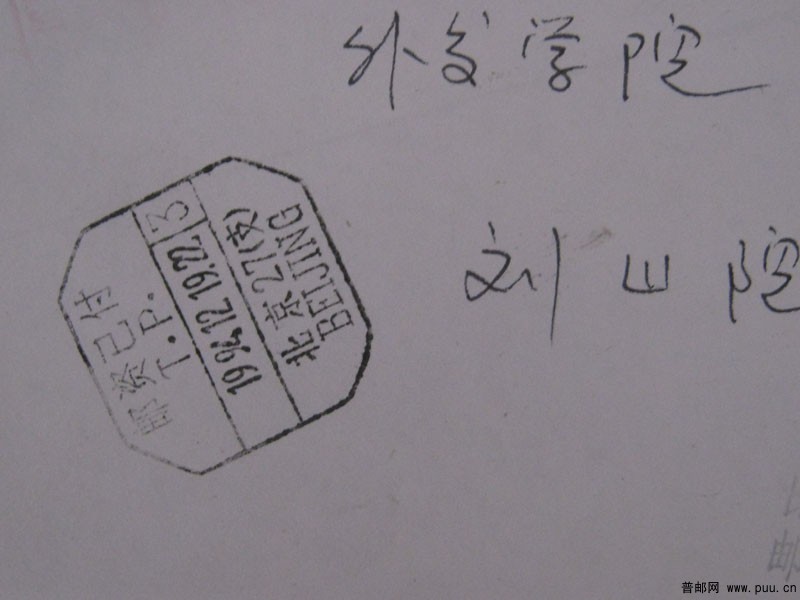 外交学院
刘山院
邮资已付
T.P.
1994.12.19.22. 3
北京27(支)
BEIJING
邮
普邮网 www.puu.cn